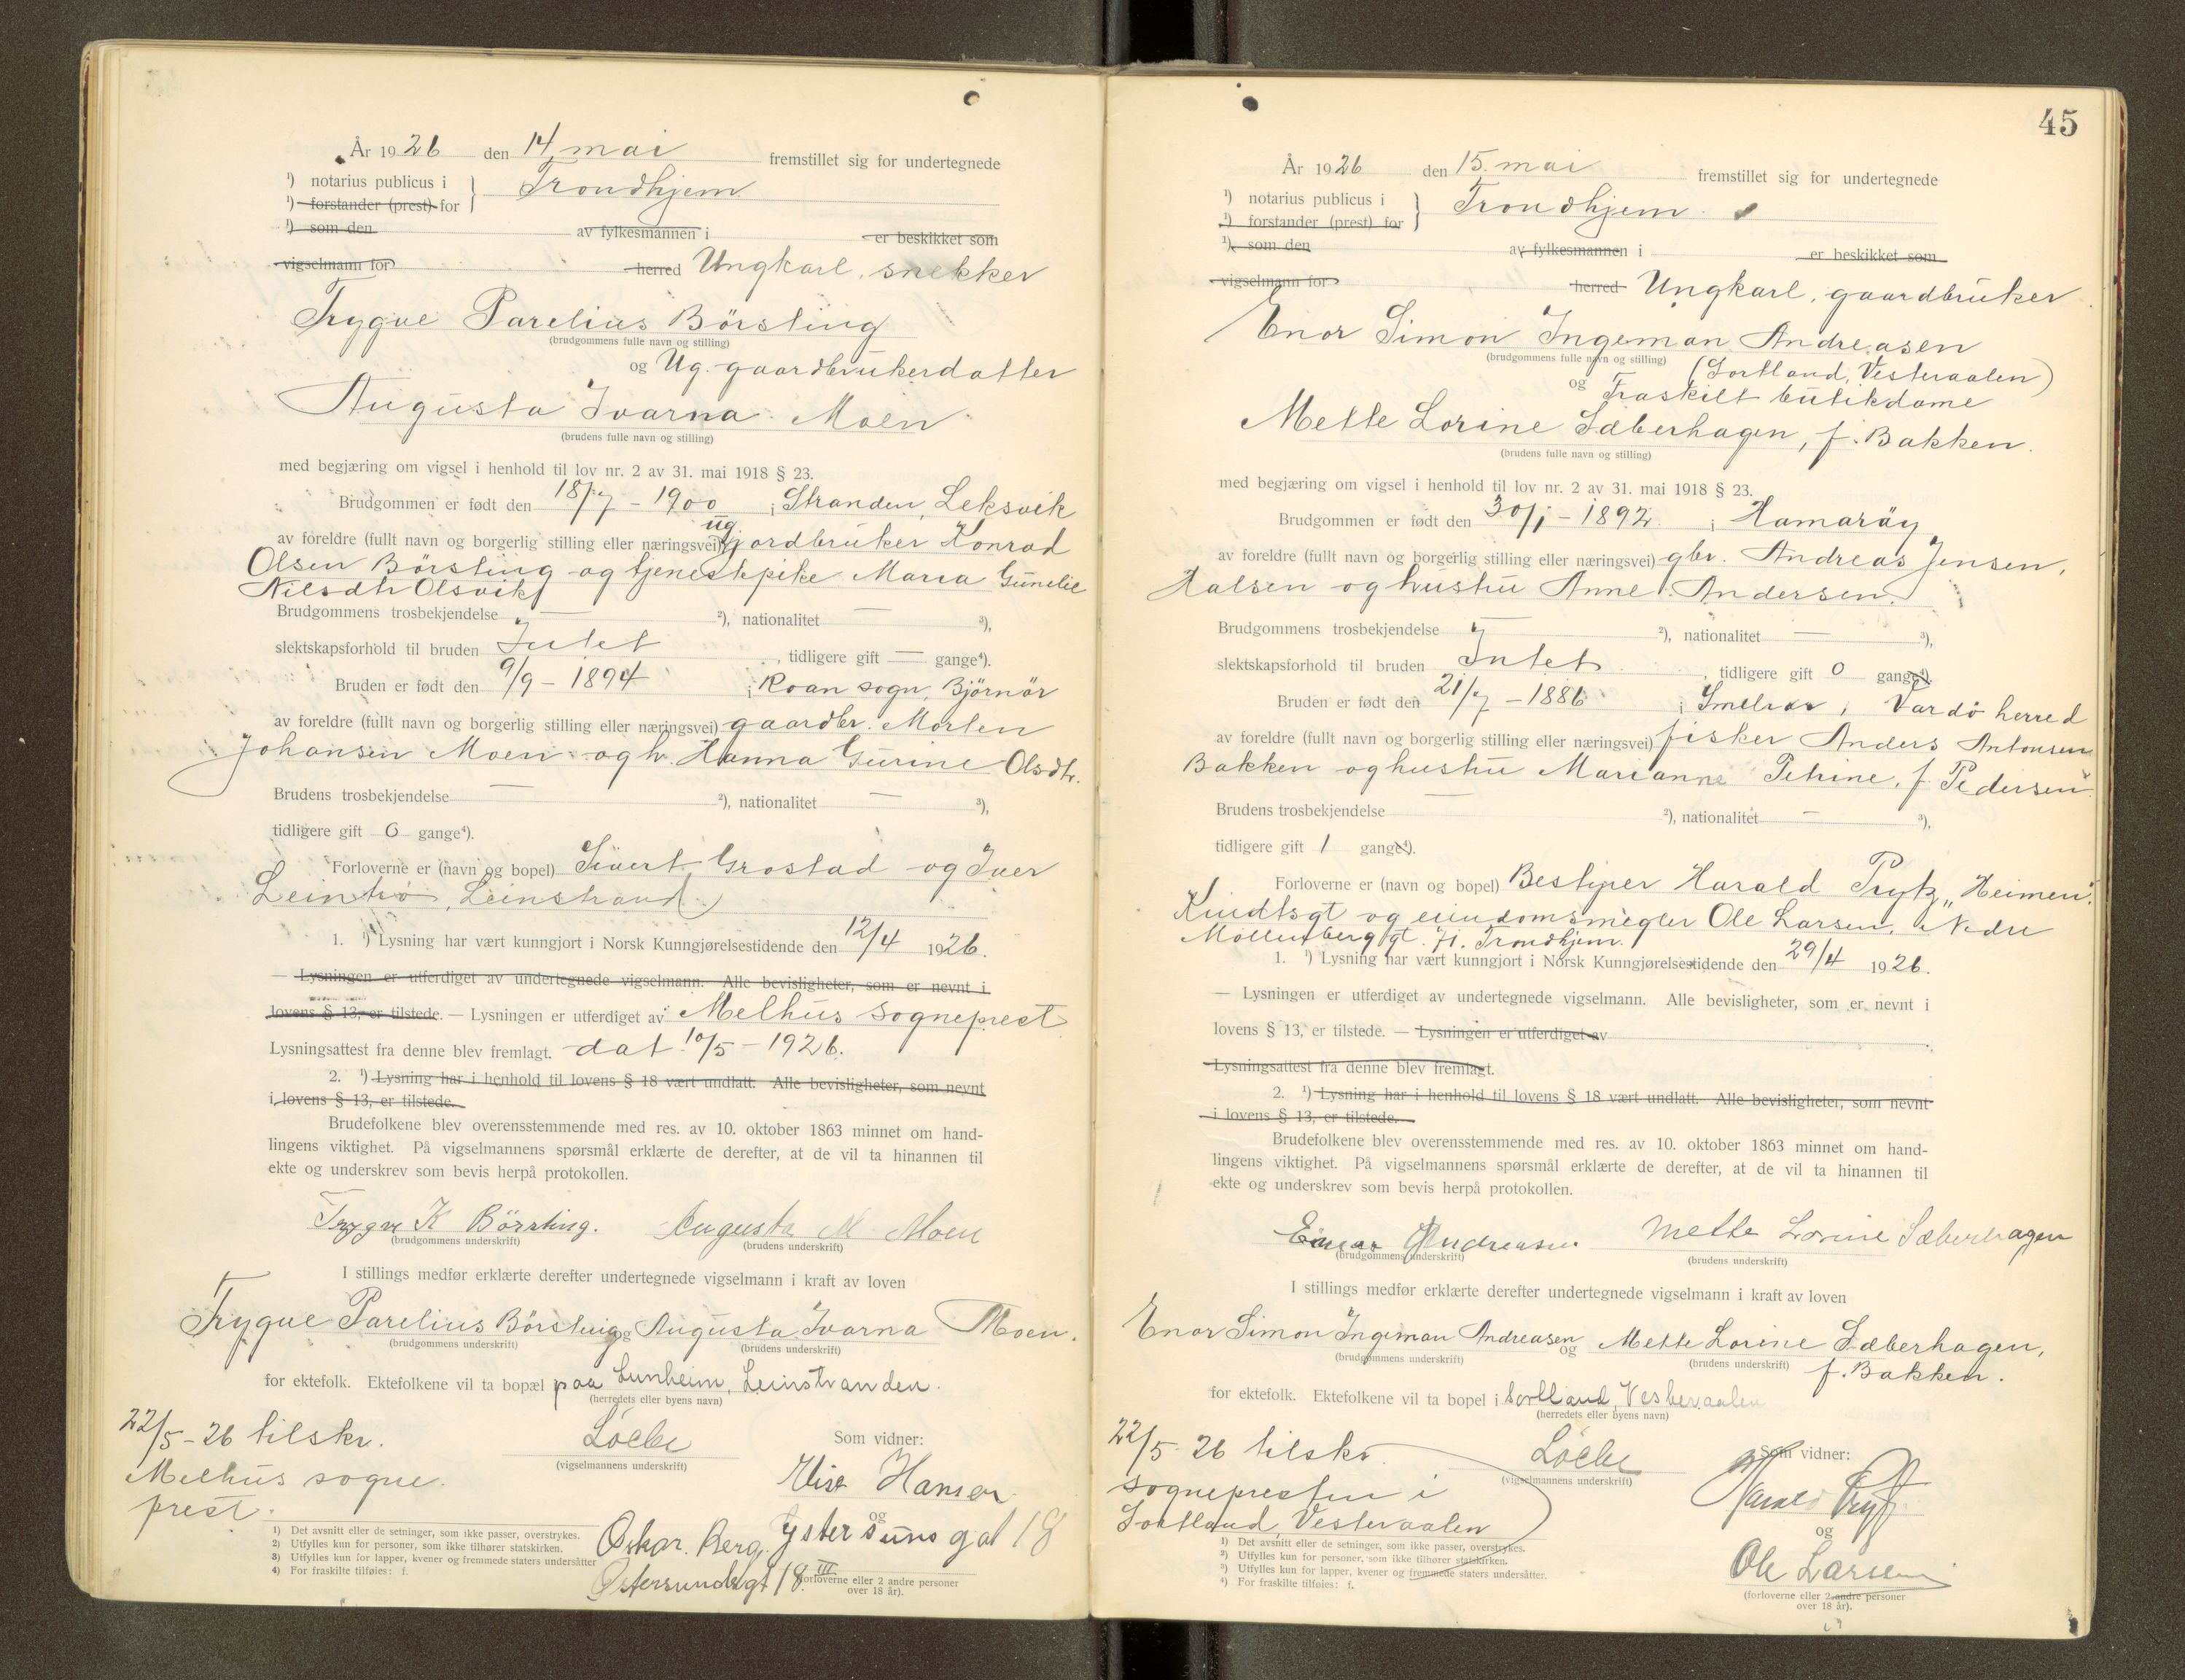 År 1926 den 14 mai fremstillet sig for undertegnede
¹) notarius publicus i } Trondhjem
¹) forstander (prest) for
¹) som den av fylkesmannen i er beskikket som
vigselmann for herred Ungkarl, snekker
Trygve Parelius Börsting
(brudgommens fulle navn og stilling)
og Ug. gaardbrukerdatter
Augusta Ivarna Moen
(brudens fulle navn og stilling)
med begjæring om vigsel i henhold til lov nr. 2 av 31. mai 1918 § 23.
Brudgommen er født den 18/7 - 1900 i Stranden, Leksvik
ug.
av foreldre (fullt navn og borgerlig stilling eller næringsvei) gjordbruker Konrad
Olsen Börsting og tjenestepike Maria Gunelie
Nilsdtr Olsvik
Brudgommens trosbekjendelse — ²), nationalitet — ³),
slektskapsforhold til bruden Intet, tidligere gift — gange⁴).
Bruden er født den 9/9 - 1894 i Roan sogn, Björnör
av foreldre (fullt navn og borgerlig stilling eller næringsvei) gaardbr. Morten
Johansen Moen og h. Hanna Gurine Olsdtr.
Brudens trosbekjendelse — ²), nationalitet — ³),
tidligere gift 0 gange⁴).
Forloverne er (navn og bopel) Sivert Grostad og Iver
Leintrø, Leinstrand
1. ¹) Lysning har vært kunngjort i Norsk Kunngjørelsestidende den 12/4 1926.
— Lysningen er utferdiget av undertegnede vigselmann. Alle bevisligheter, som er nevnt i
lovens § 13, er tilstede. — Lysningen er utferdiget av Melhus sogneprest
Lysningsattest fra denne blev fremlagt. dat. 10/5 - 1926.
2. ¹) Lysning har i henhold til lovens § 18 vært undlatt. Alle bevisligheter, som nevnt
i lovens § 13, er tilstede.
Brudefolkene blev overensstemmende med res. av 10. oktober 1863 minnet om hand-
lingens viktighet. På vigselmannens spørsmål erklærte de derefter, at de vil ta hinannen til
ekte og underskrev som bevis herpå protokollen.
Trygve K Börsting. Augusta M Moen
(brudgommens underskrift) (brudens underskrift)
I stillings medfør erklærte derefter undertegnede vigselmann i kraft av loven
Trygve Parelius Börsting og Augusta Ivarna Moen.
(brudgommens underskrift) (brudens underskrift)
for ektefolk. Ektefolkene vil ta bopæl paa Lunheim, Leinstranden.
(herredets eller byens navn)
22/5 - 26 tilskr.
Melhus sogne.
prest.
(vigselmannens underskrift)
Som vidner:
Hansen
og
Oskar. Berg, ystersunsgat 18
Østersundsgt 18 III
(forloverne eller 2 andre personer
over 18 år).
1) Det avsnitt eller de setninger, som ikke passer, overstrykes.
2) Utfylles kun for personer, som ikke tilhører statskirken.
3) Utfylles kun for lapper, kvener og fremmede staters undersåtter
4) For fraskilte tilføies: f.
45
År 1926 den 15. mai fremstillet sig for undertegnede
¹) notarius publicus i } Trondhjem
¹) forstander (prest) for
¹) som den av fylkesmannen i er beskikket som
vigselmann for herred Ungkarl, gaardbruker
Enor Simon Ingeman Andreasen
(brudgommens fulle navn og stilling) (Sortland, Vesteraalen)
og Fraskilt butikdame
Mette Lorine Sæberhagen, f. Bakken.
(brudens fulle navn og stilling)
med begjæring om vigsel i henhold til lov nr. 2 av 31. mai 1918 § 23.
Brudgommen er født den 30/1 - 1892 i Hamaröy
av foreldre (fullt navn og borgerlig stilling eller næringsvei) gbr. Andreas Jensen,
Halsen og hustru Anne Andersen.
Brudgommens trosbekjendelse — ²), nationalitet — ³),
slektskapsforhold til bruden Intet, tidligere gift 0 gange⁴).
Bruden er født den 21/7 - 1886 i Smelror, Vardö herred
av foreldre (fullt navn og borgerlig stilling eller næringsvei) fisker Anders Antonsen
Bakken og hustru Marianne Petrine, f. Pedersen.
Brudens trosbekjendelse — ²), nationalitet — ³),
tidligere gift 1 gange⁴).
Forloverne er (navn og bopel) Bestyrer Harald Prytz, "Heimen",
Kindtsgt og eiendomsmegler Ole Larsen, Nedre
Möllenberggt. 71. Trondhjem.
1. ¹) Lysning har vært kunngjort i Norsk Kunngjørelsestidende den 29/4 1926.
— Lysningen er utferdiget av undertegnede vigselmann. Alle bevisligheter, som er nevnt i
lovens § 13, er tilstede. — Lysningen er utferdiget av
Lysningsattest fra denne blev fremlagt.
2. ¹) Lysning har i henhold til lovens § 18 vært undlatt. Alle bevisligheter, som nevnt
i lovens § 13, er tilstede.
Brudefolkene blev overensstemmende med res. av 10. oktober 1863 minnet om hand-
lingens viktighet. På vigselmannens spørsmål erklærte de derefter, at de vil ta hinannen til
ekte og underskrev som bevis herpå protokollen.
Andreasen Mette Lorine Sæberhagen
(brudgommens underskrift) (brudens underskrift)
I stillings medfør erklærte derefter undertegnede vigselmann i kraft av loven
Enor Simon Ingeman Andreasen og Mette Lorine Sæberhagen,
(brudgommens underskrift) (brudens underskrift) f. Bakken.
for ektefolk. Ektefolkene vil ta bopel i Sortland, Vesteraalen
(herredets eller byens navn)
22/5 - 26 tilskr.
sognepresten i
Sortland, Vesteraalen
(vigselmannens underskrift)
Som vidner:
Harald Prytz
og
Ole Larsen
(forloverne eller 2 andre personer
over 18 år).
1) Det avsnitt eller de setninger, som ikke passer, overstrykes.
2) Utfylles kun for personer, som ikke tilhører statskirken.
3) Utfylles kun for lapper, kvener og fremmede staters undersåtter.
4) For fraskilte tilføies: f.